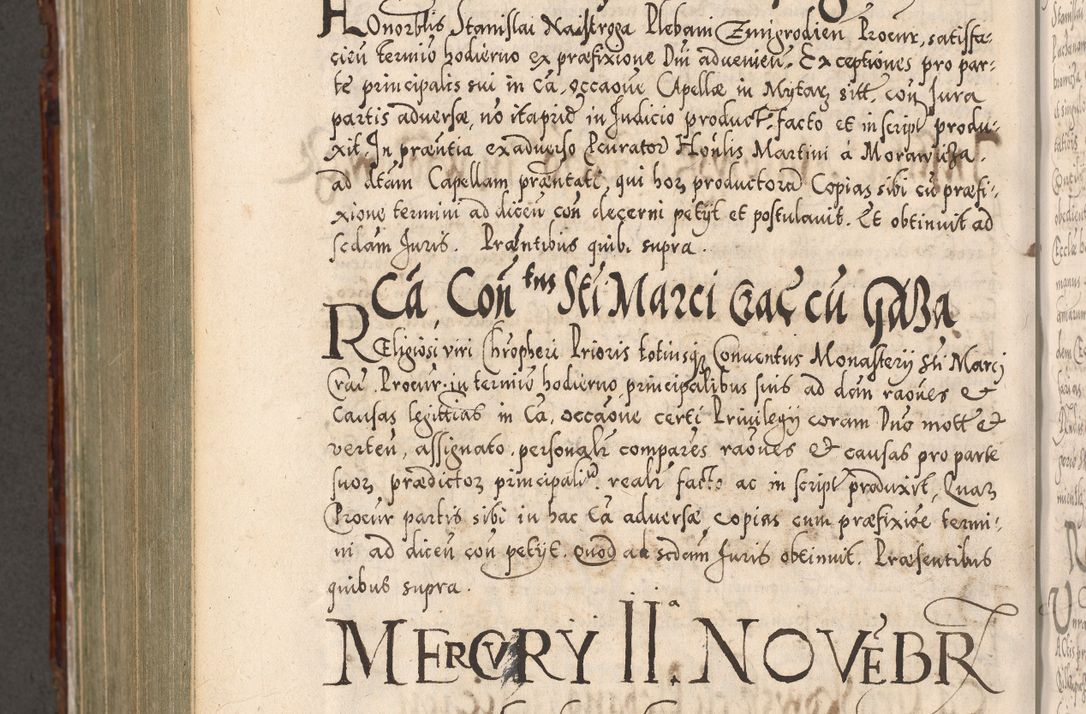 Honorblis Stanislai Naistroga Plebani Zmigrodien Procur, satisfa-
cien termio hodierno ex præfixione Dni advenien. Exceptiones pro par-
te principalis sui in Cā, occaōne Capellæ in Mytarz sitt, con Jura
partis adversæ, nō ita prid in Judicio product. facto et in script produ-
xit. In præntia ex adverso Pcurator Honlis Martini à Morawicza,
ad dtām Capellam præntati, qui hor productorā Copias sibi cū præfi-
xione termini ad dicen con decerni petijt et postulavit. Et obtinuit ad
scdam Juris. Præntibus quib. supra.
Cā Con tus Sti Marci Crac cū Gaza
Religiosi viri Chropheri Prioris totiusq Conventus Monasterij Sti Marci
Crac. Procur. in termio hodierno principalibus suis ad dcin raōnes &
Causas legittias in Cā, occaōne certi Privilegij coram Dno mott &
verten, assignato, personali compares raōnes & causas pro parte
suor prædictor principaliū reali facto ac in script produxit, Quar
Procur partis sibi in hac Cā adversæ copias cum præfixiōe termi-
ni ad dicen con petijt. Quod ad scdam Juris obtinuit. Præsentibus
quibus supra.
MERCVRY II.ª NOVEBR